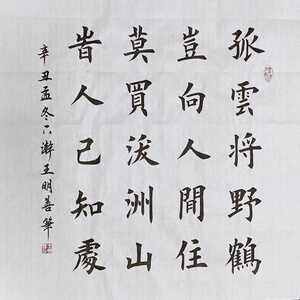 孤雲将野鶴
豈向人間住
莫買沃洲山
旹人已知處
辛丑孟冬下澣王明善筆